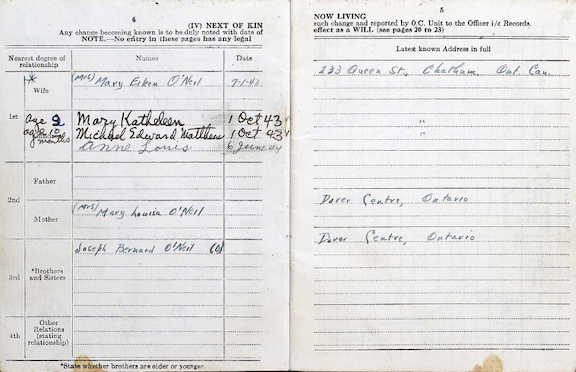 4
(IV) NEXT OF KIN
Any change becoming known is to be duly noted with date of
NOTE.—No entry in these pages has any legal
Nearest degree of relationship
Names
Date
*
Wife
(Mrs) Mary Eileen O'Neil
7-1-43
1st
age 2
Mary Kathleen
1 Oct 43
age 10 months
Michael Edward Matthew
1 Oct 43
Anne Louis
6 June 44
Father
2nd
Mother
(Mrs) Mary Louisa O'Neil
Joseph Bernard O'Neil
3rd
*Brothers and Sisters
4th
Other Relations (stating relationship)
*State whether brothers are elder or younger.
5
NOW LIVING
such change and reported by O.C. Unit to the Officer i/c Records.
effect as a WILL (see pages 20 to 23)
Latest known Address in full
233 Queen St., Chatham, Ont. Can.
"
"
Dover Centre, Ontario
Dover Centre, Ontario